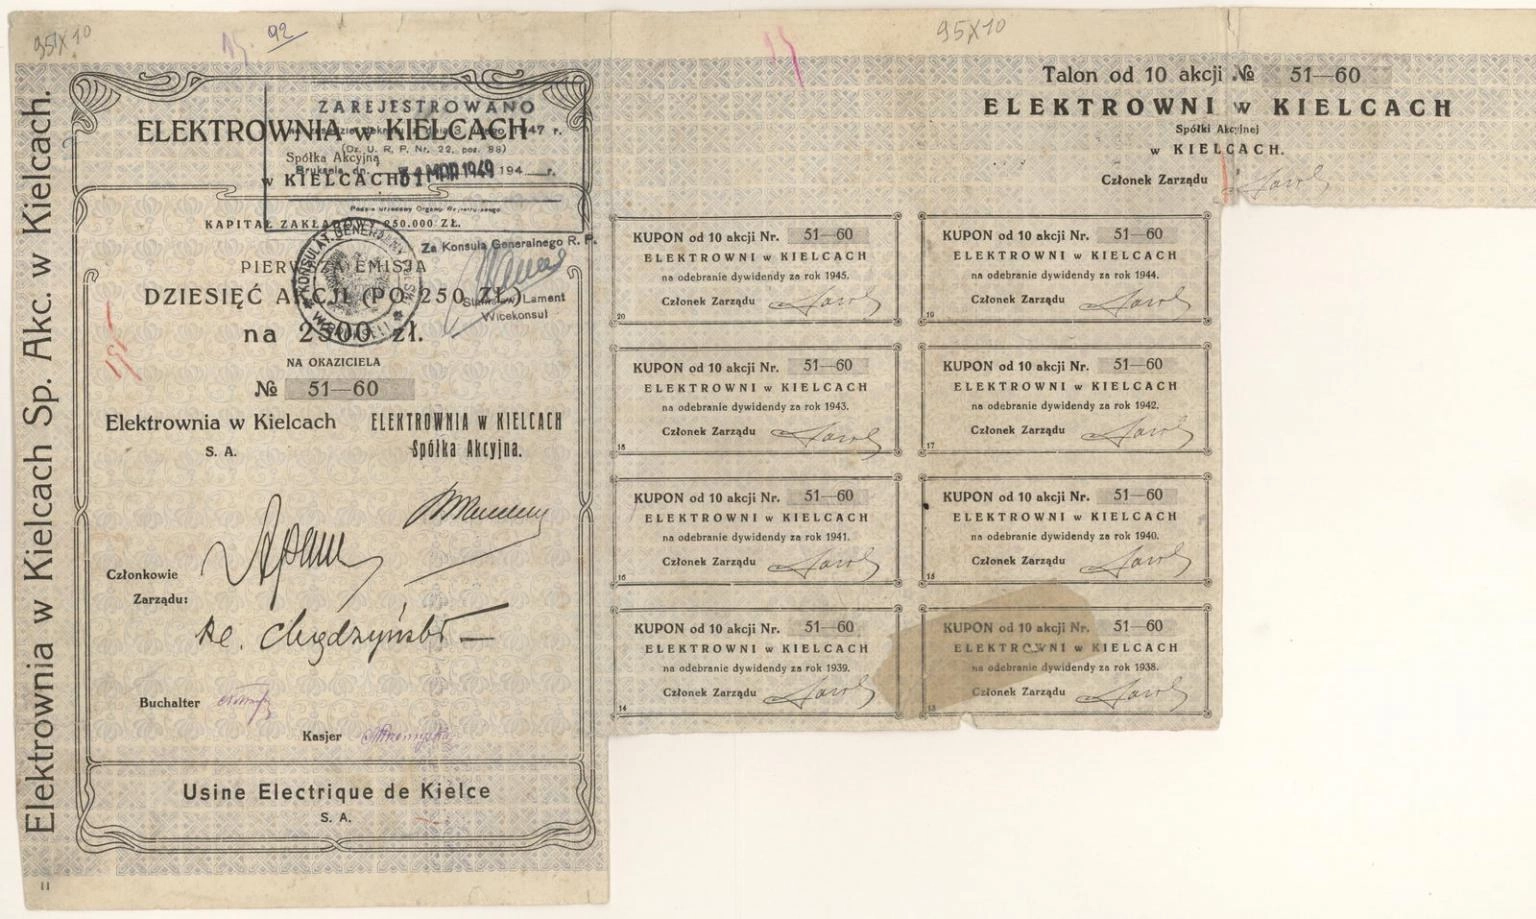 95X10
92
95X10
Elektrownia w Kielcach Sp. Akc. w Kielcach.
ZAREJESTROWANO
ELEKTROWNIA w KIELCACH
1947 r.
(Dz. U. R. P. Nr. 22, poz. 88)
Spółka Akcyjna
Bruksela dn. 31 MAR 1949 194 r.
w KIELCACH
KAPITAŁ ZAKŁADOWY 250.000 ZŁ.
KONSULAT GENERALNY
W BRUKSELI
Za Konsula Generalnego R. P.
PIERWSZA EMISJA
DZIESIĘĆ AKCJI (PO 250 ZŁ)
Stanisław Lament
Wicekonsul
na 2500 zł.
NA OKAZICIELA
№ 51—60
Elektrownia w Kielcach
S. A.
ELEKTROWNIA W KIELCACH
Spółka Akcyjna.
Członkowie
Zarządu:
Buchalter
Kasjer
Usine Electrique de Kielce
S. A.
11
Talon od 10 akcji № 51—60
ELEKTROWNI w KIELCACH
Spółki Akcyjnej
w KIELCACH.
Członek Zarządu
KUPON od 10 akcji Nr. 51—60
ELEKTROWNI w KIELCACH
na odebranie dywidendy za rok 1945.
Członek Zarządu
20
KUPON od 10 akcji Nr. 51—60
ELEKTROWNI w KIELCACH
na odebranie dywidendy za rok 1944.
Członek Zarządu
19
KUPON od 10 akcji Nr. 51—60
ELEKTROWNI w KIELCACH
na odebranie dywidendy za rok 1943.
Członek Zarządu
18
KUPON od 10 akcji Nr. 51—60
ELEKTROWNI w KIELCACH
na odebranie dywidendy za rok 1942.
Członek Zarządu
17
KUPON od 10 akcji Nr. 51—60
ELEKTROWNI w KIELCACH
na odebranie dywidendy za rok 1941.
Członek Zarządu
16
KUPON od 10 akcji Nr. 51—60
ELEKTROWNI w KIELCACH
na odebranie dywidendy za rok 1940.
Członek Zarządu
15
KUPON od 10 akcji Nr. 51—60
ELEKTROWNI w KIELCACH
na odebranie dywidendy za rok 1939.
Członek Zarządu
14
KUPON od 10 akcji Nr. 51—60
ELEKTROWNI w KIELCACH
na odebranie dywidendy za rok 1938.
Członek Zarządu
13